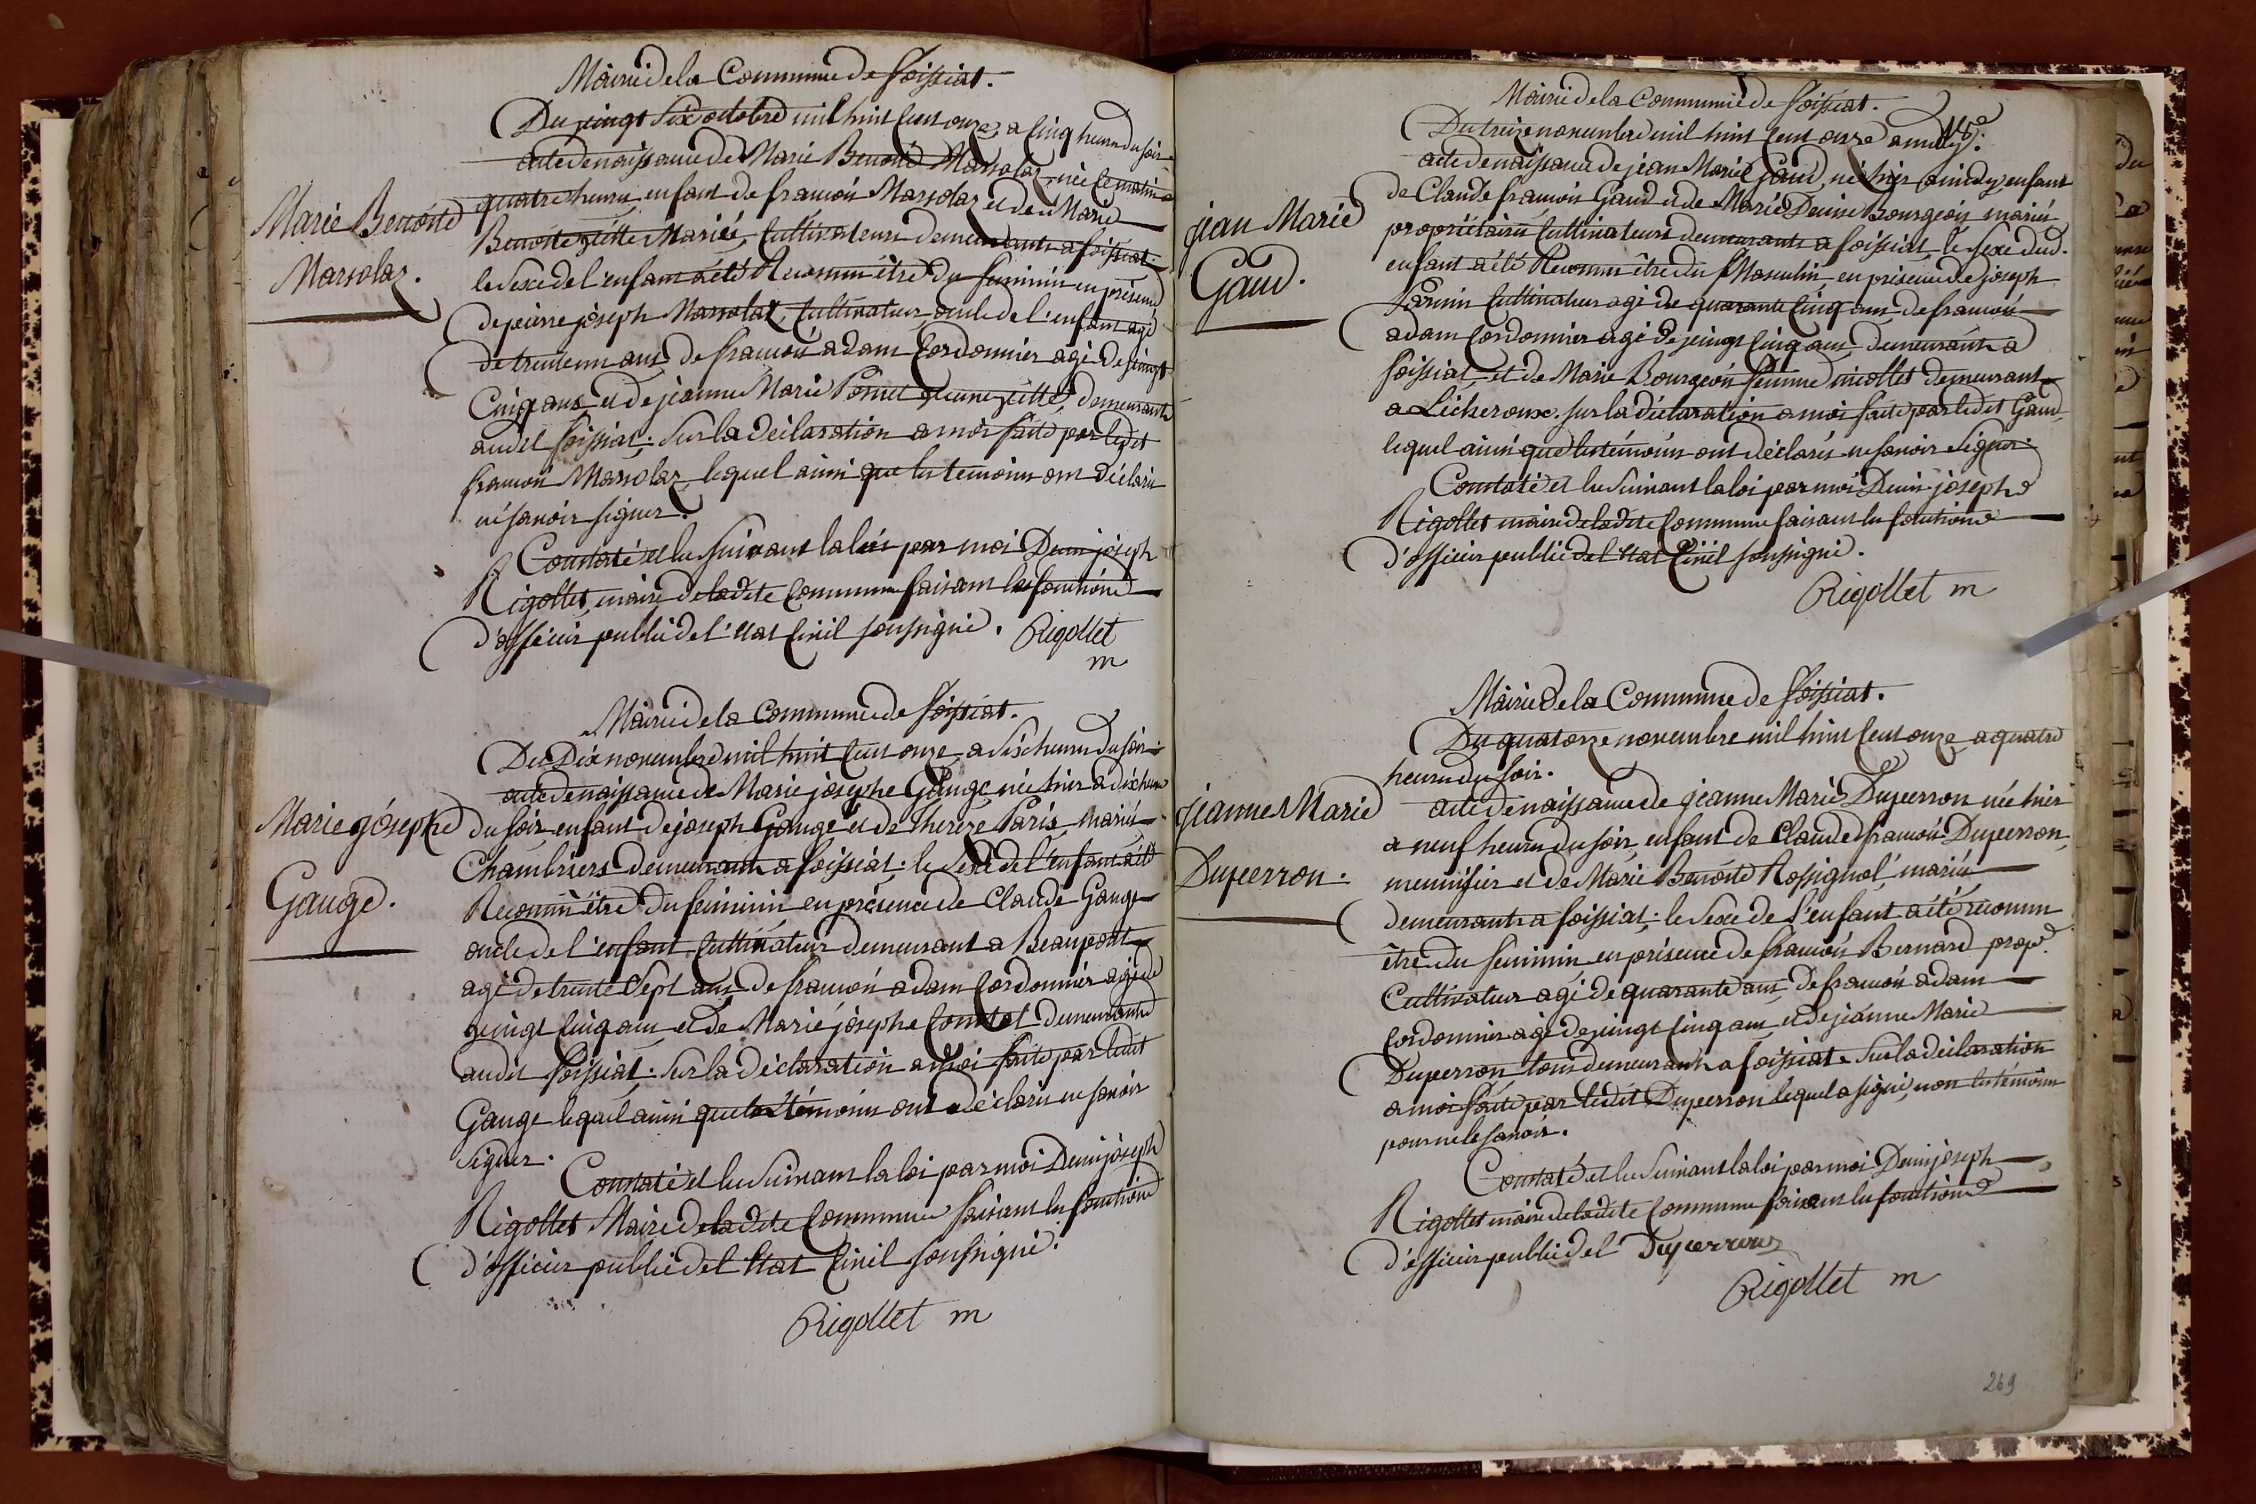 Mairie de la Commune de foissiat.
Du vingt six octobre mil huit Cent onze, a Cinq heures du soir
acte de naissance de Marie Benoite Marsolaz, née Ce matin a
quatre heures, enfant de françois Marsolaz et de Marie
Marie Benoite
Benoite Mariés, Cultivateurs demeurants a foissiat.
Marsolaz.
le Sexe de l'enfant a été Reconnu être du feminin en présence
de pierre joseph Marsolaz, Cultivateur, oncle de l'enfant agé
de trente un ans, de françois adam Cordonnier agé de vingt
Cinq ans, et de jeanne Marie demeurants
audit foissiat. Sur la déclaration a moi faite par ledit
françois Marsolaz, lequel ainsi que les temoins ont déclaré
ne savoir signer.
Constaté et lu suivant la loi par moi Denis joseph
Rigollet, maire de ladite Commune faisant les fonctions
d'officier public de l'état Civil soussigné. Rigollet
m
Mairie de la Commune de foissiat.
Du Dix novembre mil huit Cent onze, a Six heures du soir
acte de naissance de Marie josephe Gauge née hier a dix heures
Marie josephe
du soir, enfant de joseph Gauge et de thereze Paris, mariés
Chambriers demeurants a foissiat. le Sexe de l'enfant a été
Gauge.
Reconnu être du feminin en présence de Claude Gauge
oncle de l'enfant, Cultivateur demeurant a Beaupont
agé de trente Sept ans, de françois adam Cordonnier agé de
vingt Cinq ans, et de Marie josephe demeurants
audit foissiat. Sur la déclaration a moi faite par ledit
Gauge lequel ainsi que les témoins ont déclaré ne savoir
Signer.
Constaté et lu Suivant la loi par moi Denis joseph
Rigollet Maire de ladite Commune faisant les fonctions
d'officier public de l'état Civil soussigné.
Rigollet m
Mairie de la Commune de foissiat.
Du treize novembre mil huit Cent onze a midy.
acte de naissance de jean Marie Gaud, né hier a midy, enfant
de Claude françois Gaud et de Marie Denise Bourgeois mariés
jean Marie
propriétaires Cultivateurs demeurants a foissiat, le Sexe dud.
Gaud.
enfant a été Reconnu être du Masculin, en présence de joseph
Cultivateur agé de quarante Cinq ans, de françois
adam Cordonnier agé de vingt Cinq ans, demeurants a
foissiat, et de Marie Bourgeois femme nicollet demeurant
a Lécheroux. sur la déclaration a moi faite par ledit Gaud,
lequel ainsi que les témoins ont déclarés ne savoir Signer.
Constaté et lu Suivant la loi par moi Denis josephe
Rigollet maire de ladite Commune faisant les fonctions
d'officier public de l'état Civil soussigné.
Rigollet m
Mairie de la Commune de foissiat.
Du quatorze novembre mil huit Cent onze, a quatre
heures du soir.
jeanne Marie
acte de naissance de jeanne Marie Duperron née hier
a neuf heures du soir, enfant de Claude françois Duperron,
Duperron.
menuisier et de Marie Benoite Rossignol, mariés
demeurants a foissiat. le Sexe de l'enfant a été reconnu
être du feminin en présence de françois Bernard prop.
Cultivateur agé de quarante ans, de françois adam
Cordonnier agé de vingt Cinq ans, et de jeanne Marie
Duperron, tous demeurants a foissiat. Sur la déclaration
a moi faite par ledit Duperron lequel a signé, non les témoins
pour ne le savoir.
Constaté et lu Suivant la loi par moi Denis joseph
Rigollet maire de ladite Commune faisant les fonctions
d'officier public de l' Duperron
Rigollet m
269